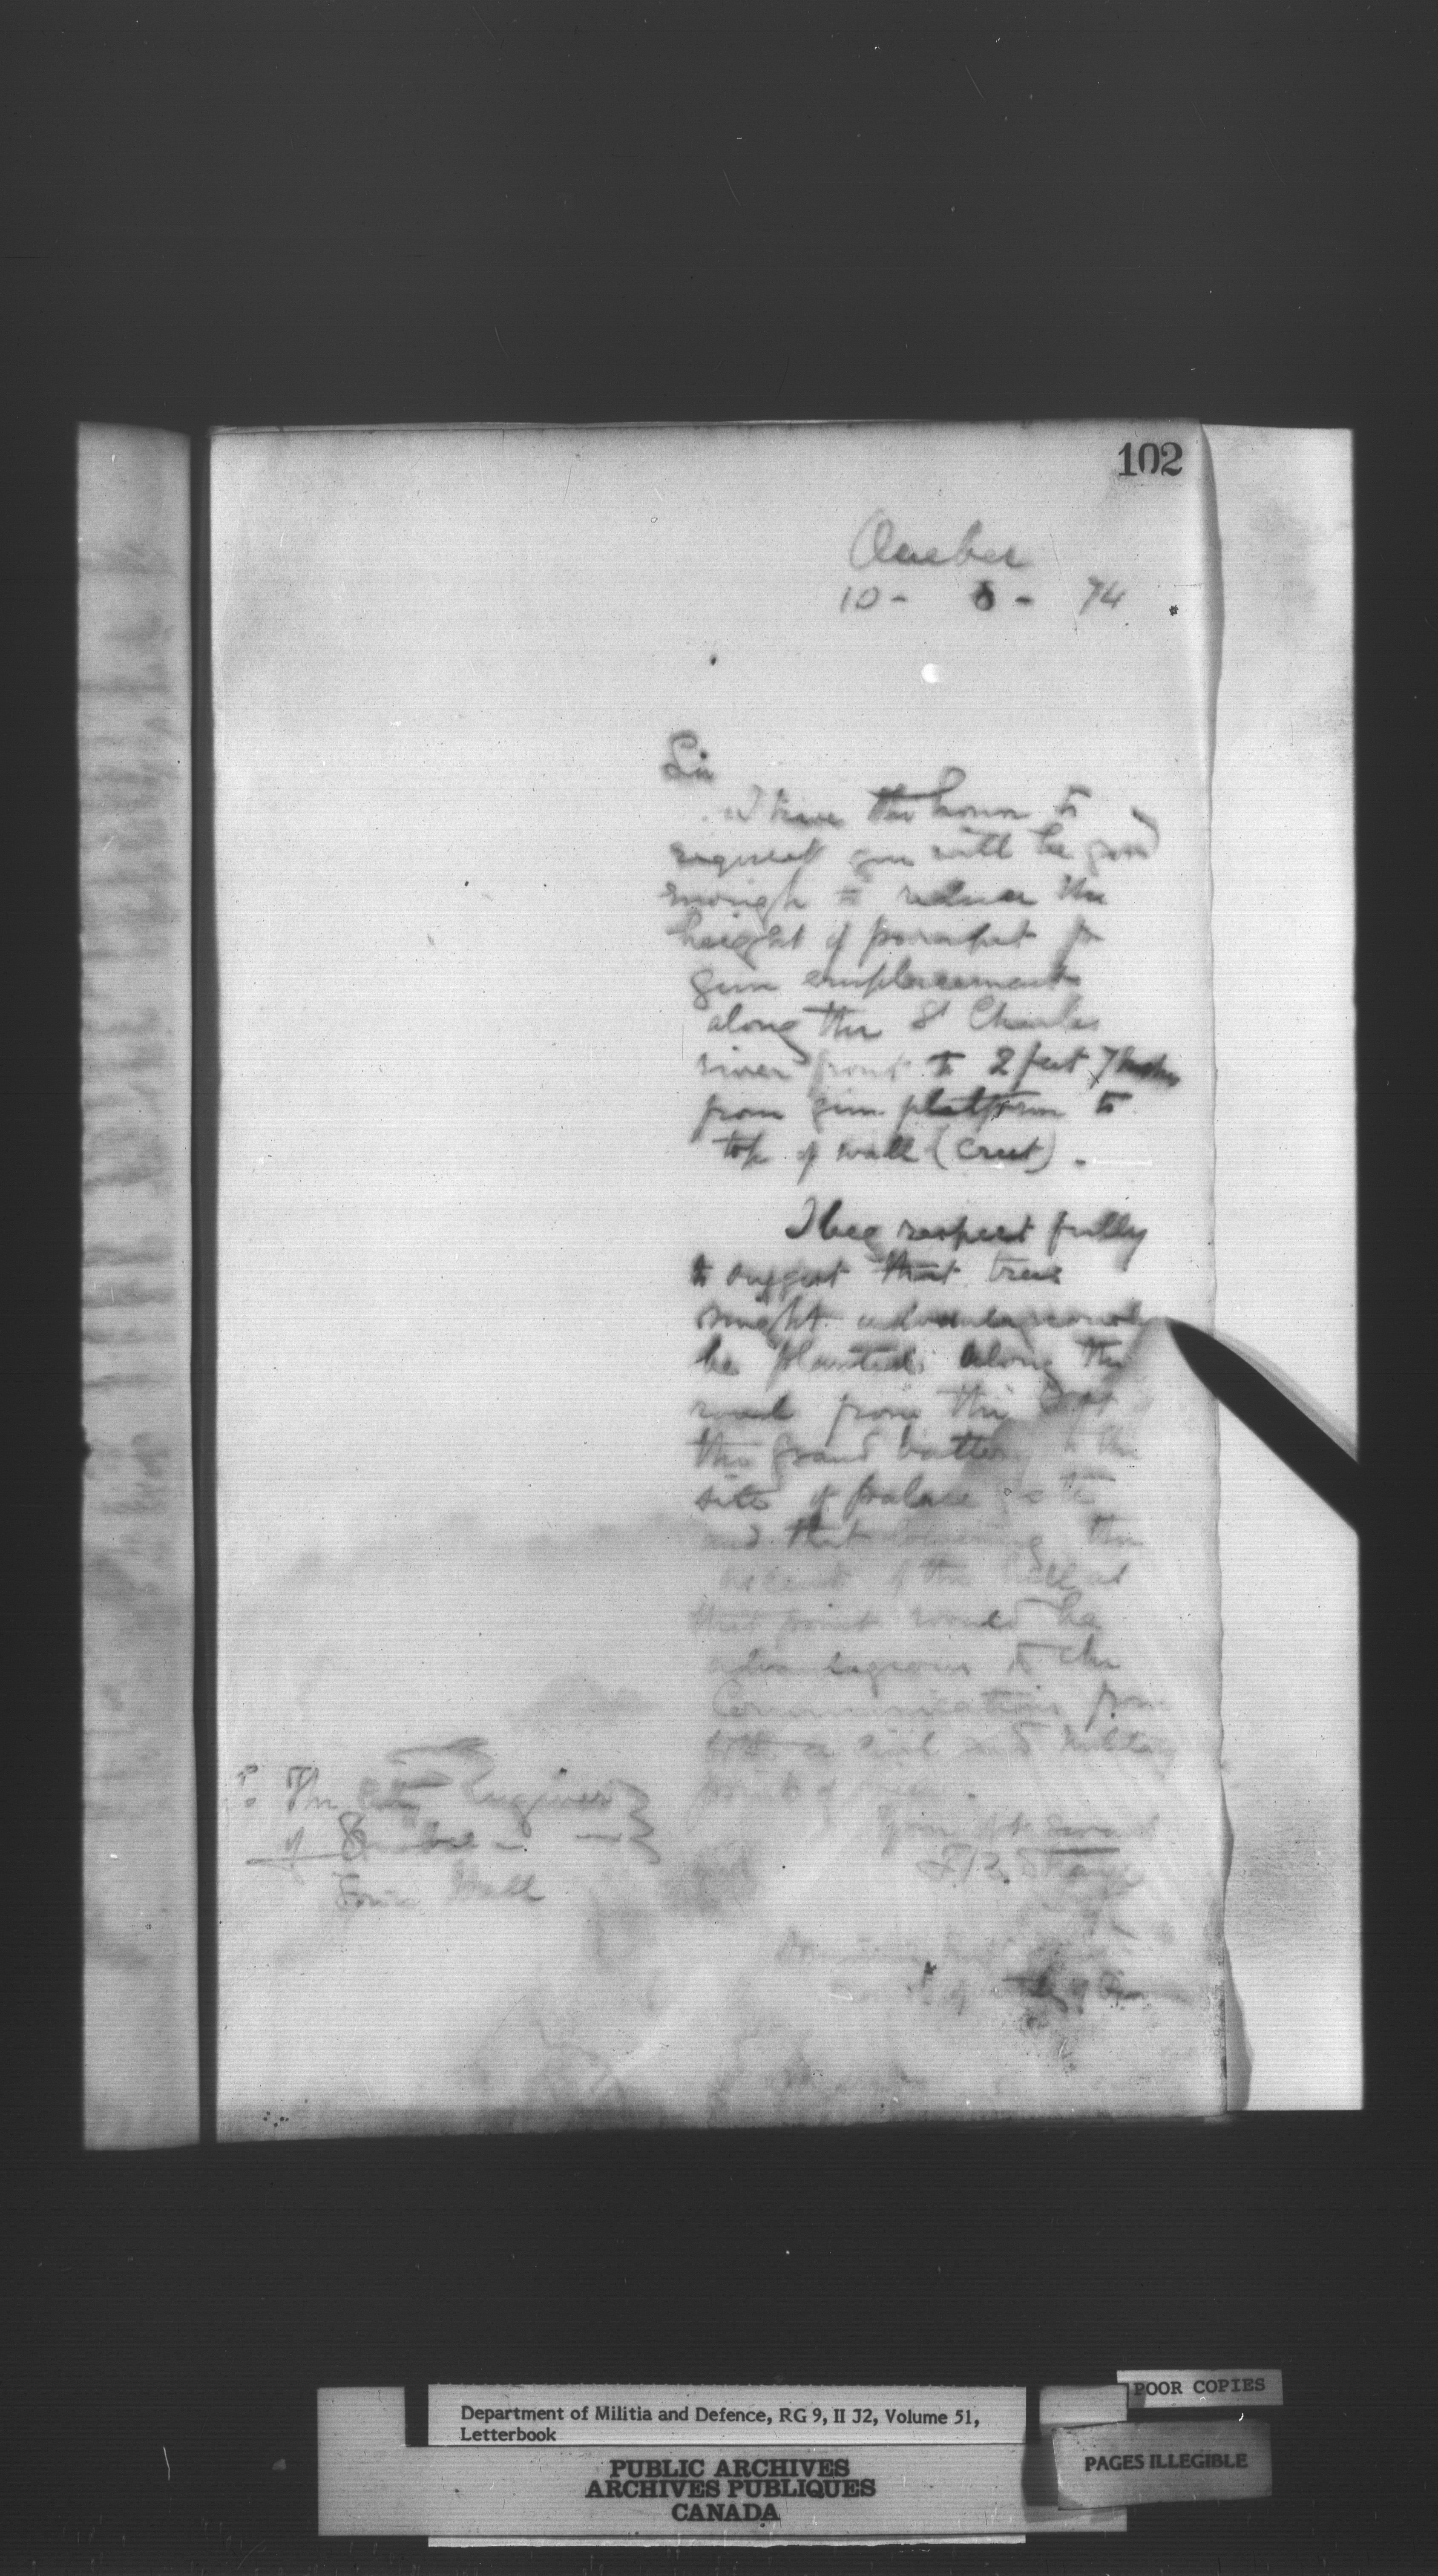 102
Quebec
10 - 8 - 74
Sir
I have the honor to
request you will be good
enough to reduce the
height of parapet for
gun emplacements
along the St Charles
river front to 2 feet 7 inches
from gun platform to
top of wall (crest). -
I beg respectfully
to suggest that trees
might advantageously
be planted along the
road from the
the grand battery to the
site of palace gate
and that lowering the
ascent of the hill at
that point would be
advantageous to the
Communication from
both a Civil and Military
point of view.
Your obt servt
T B Strange
To The City Engineer
of Quebec -
Town Hall
Department of Militia and Defence, RG 9, II J2, Volume 51,
Letterbook
PUBLIC ARCHIVES
ARCHIVES PUBLIQUES
CANADA
POOR COPIES
PAGES ILLEGIBLE